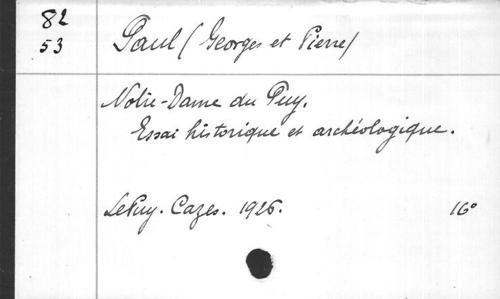 82
53
Paul (Georges et Pierre)
Notre-Dame du Puy.
Essai historique et archéologique.
Le Puy. Cazes. 1926. 16°